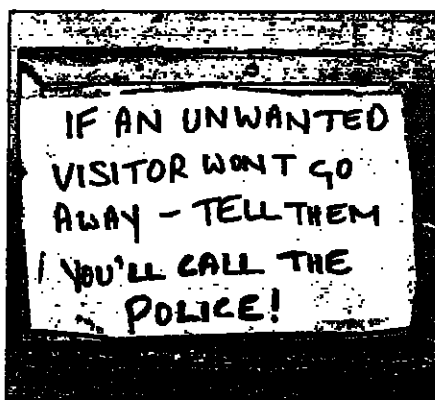 IF AN UNWANTED
VISITOR WONT GO
AWAY - TELL THEM
YOU'LL CALL THE
POLICE!